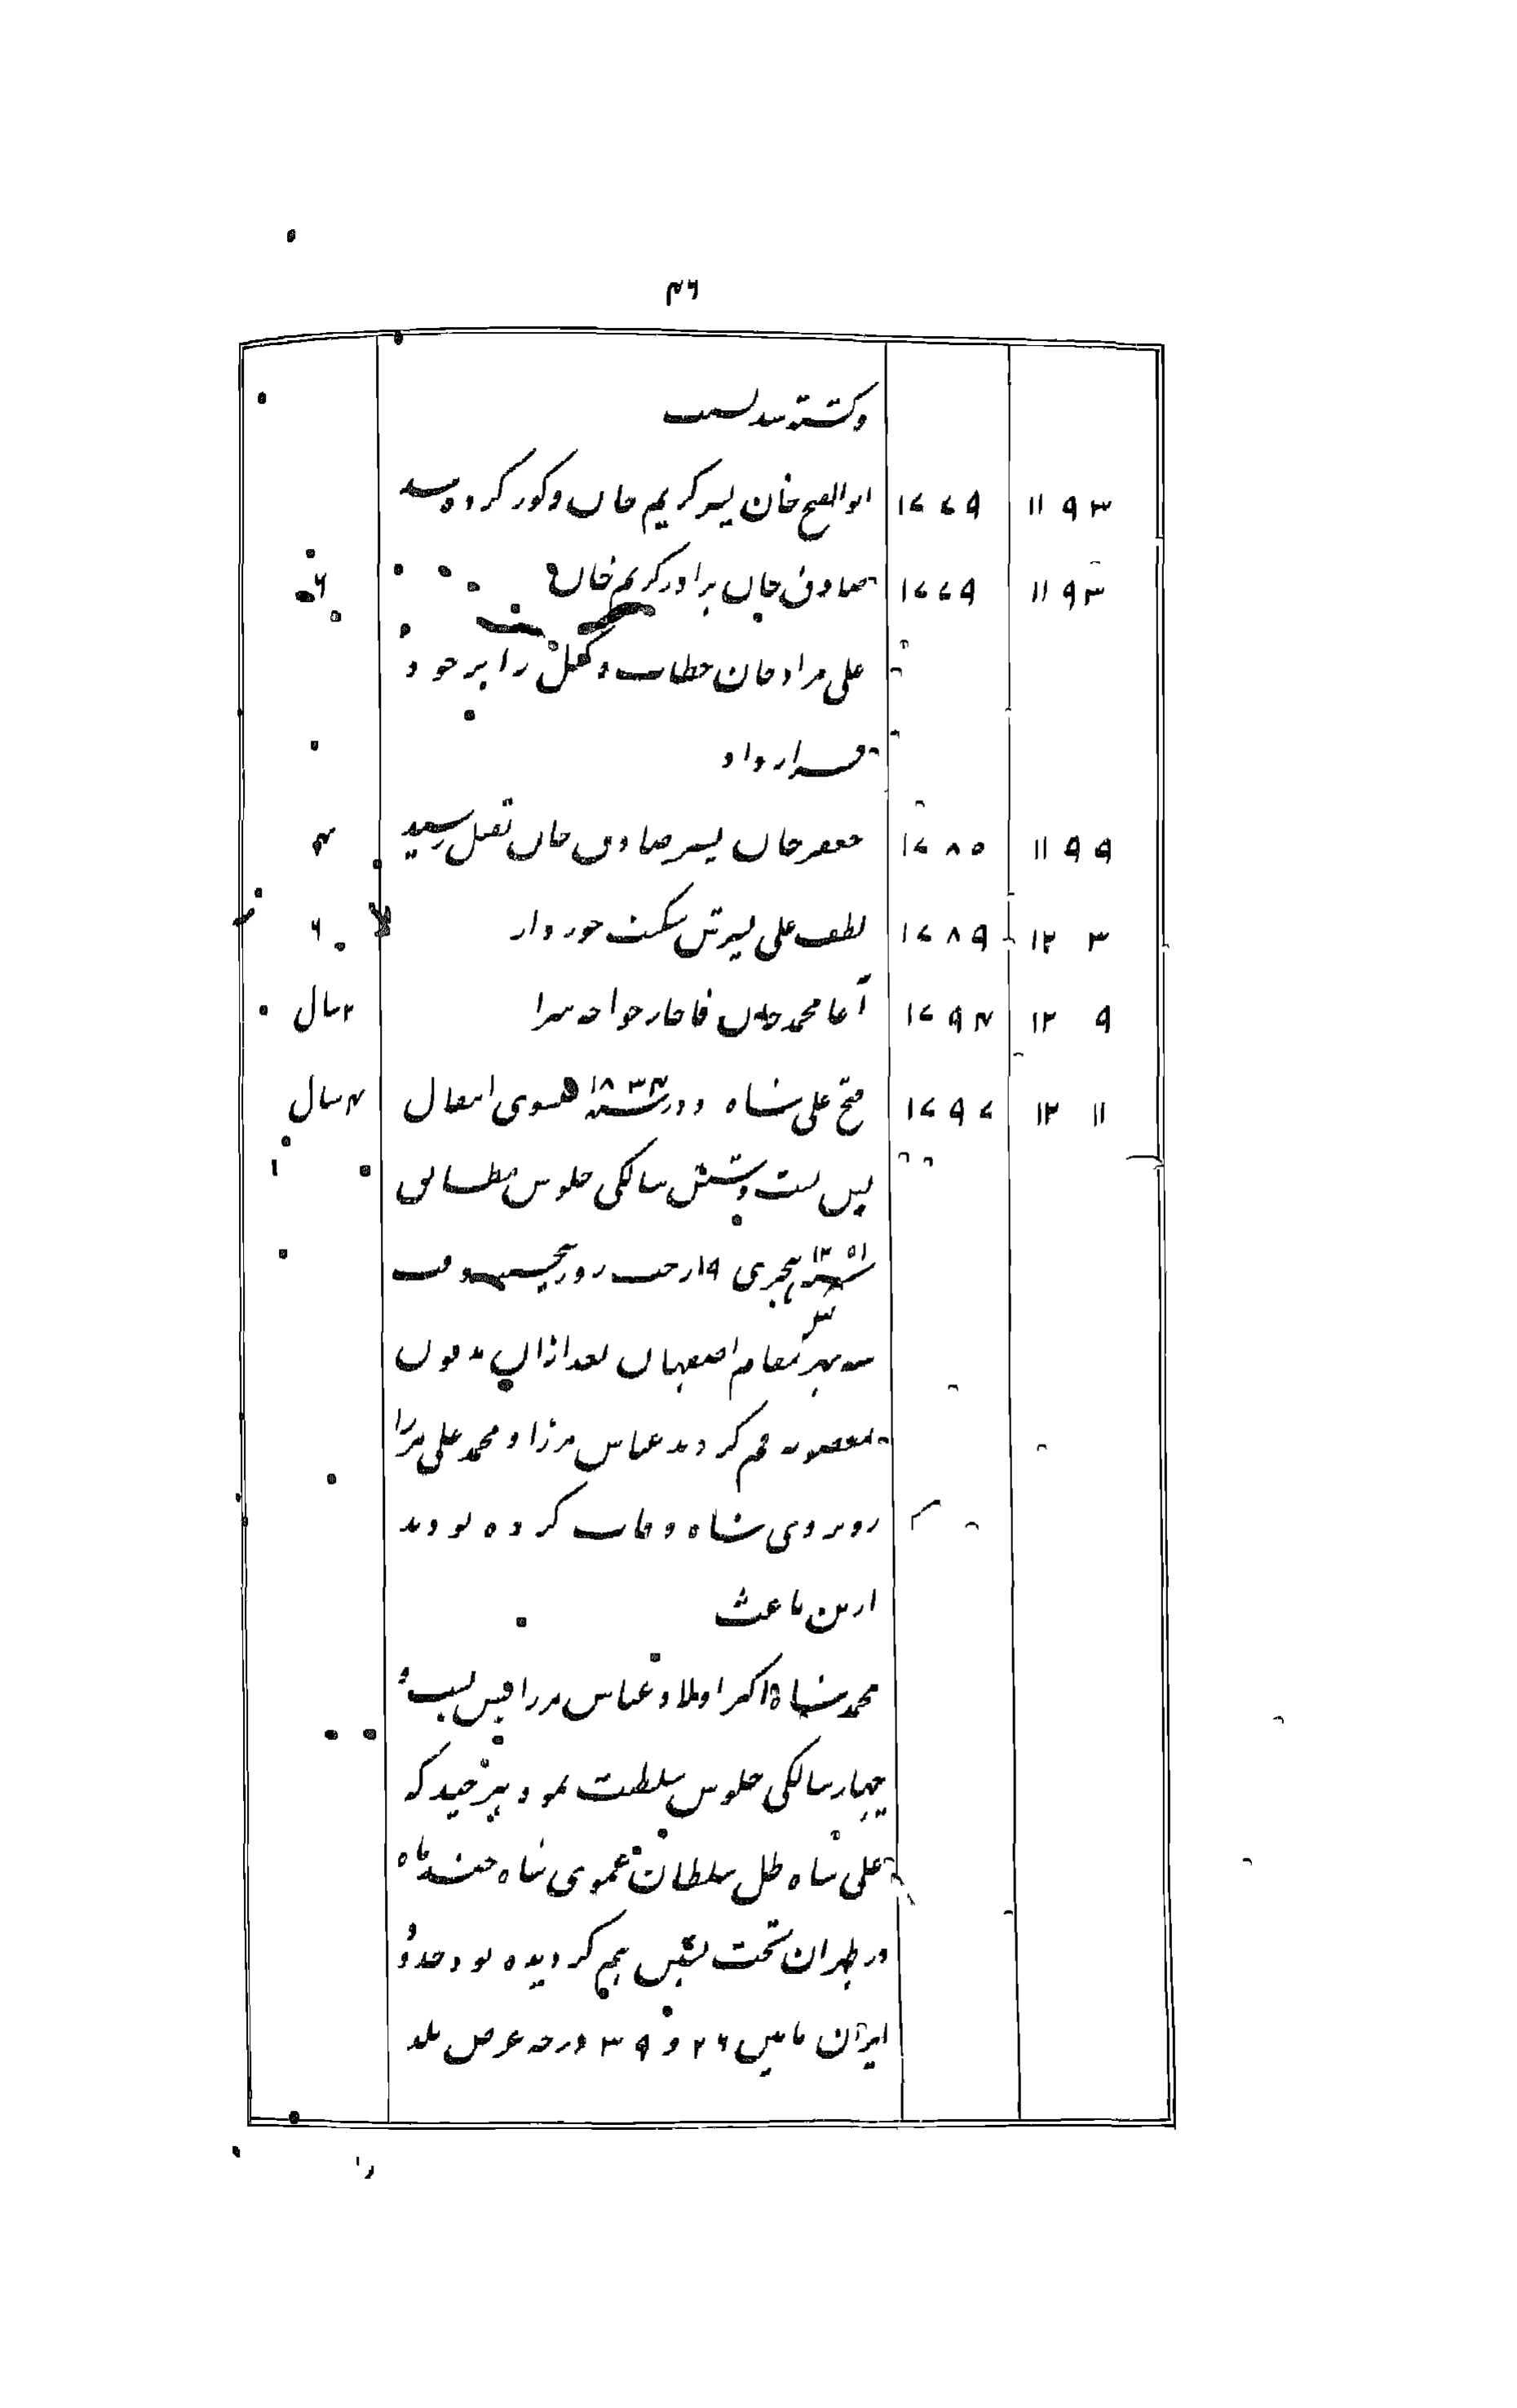 ۴۶
وکشته شد لیست
۱۱۹۳ ۱۷۷۹ ابوالفتح خان پسر کریم خان وکور کرده شد
۱۱۹۳ ۱۷۷۹ صادق خان برادر کریم خان ۶
علی مراد خان خطاب وکیل را بر خود
قرار داد
۱۱۹۹ ۱۷۸۵ جعفر خان پسر صادق خان بقتل رسید ۴
۱۲ ۳ ۱۷۸۹ لطف علی پسرش شکست خورد از ۶
۱۲ ۹ ۱۷۹۴ آغا محمد خان قاجار خواجه سرا ۲ سال
۱۲ ۱۱ ۱۷۹۷ فتح علی شاه و در سنه ۱۸۳۴ عیسوی انتقال ۴ سال
پس بست وشش سالگی جلوس مطابق
سنه ۱۲۵۱ هجری ۱۹ رجب روز پنجشنبه وقت
سه پهر بمقام اصفهان بعد ازان مدفون
معصومه قم کردند عباس مرزا و محمد علی مرزا
روبروی شاه وفات کرده بودند
ازین باعث
محمد شاه اکبر اولاد عباس مرزا بسن بست و
چهار سالگی جلوس سلطنت نمود هرچند که
علی شاه ظل سلطان عموی شاه چند ماه
در طهران تخت نشین هم گردیده بود حدود
ایران مابین ۲۶ و ۳۹ درجه عرض بلد